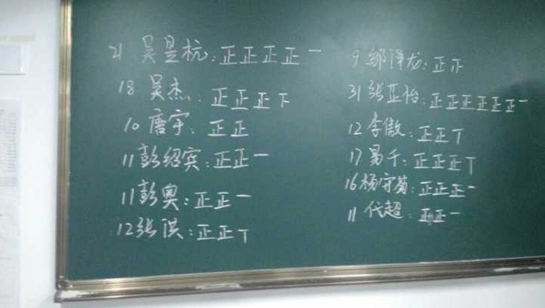 21 吴昱杭:正正正正一
18 吴杰:正正正下
10 唐宇:正正
11 彭绍宾:正正一
11 彭奥:正正一
12 张洪:正正丅
9 邹泽龙:正下
31 张正怡:正正正正正正一
12 李傲:正正丅
17 易千:正正正丅
16 杨守菊:正正正一
11 代超:正正一